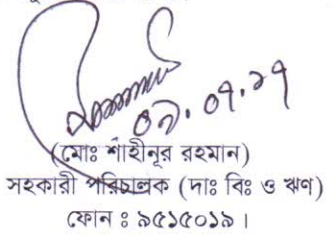 ০৯.০৭.১৭
(মোঃ শাহীনূর রহমান)
সহকারী পরিচালক (দাঃ বিঃ ও ঋণ)
ফোন ঃ ৯৫১৫০১৯।